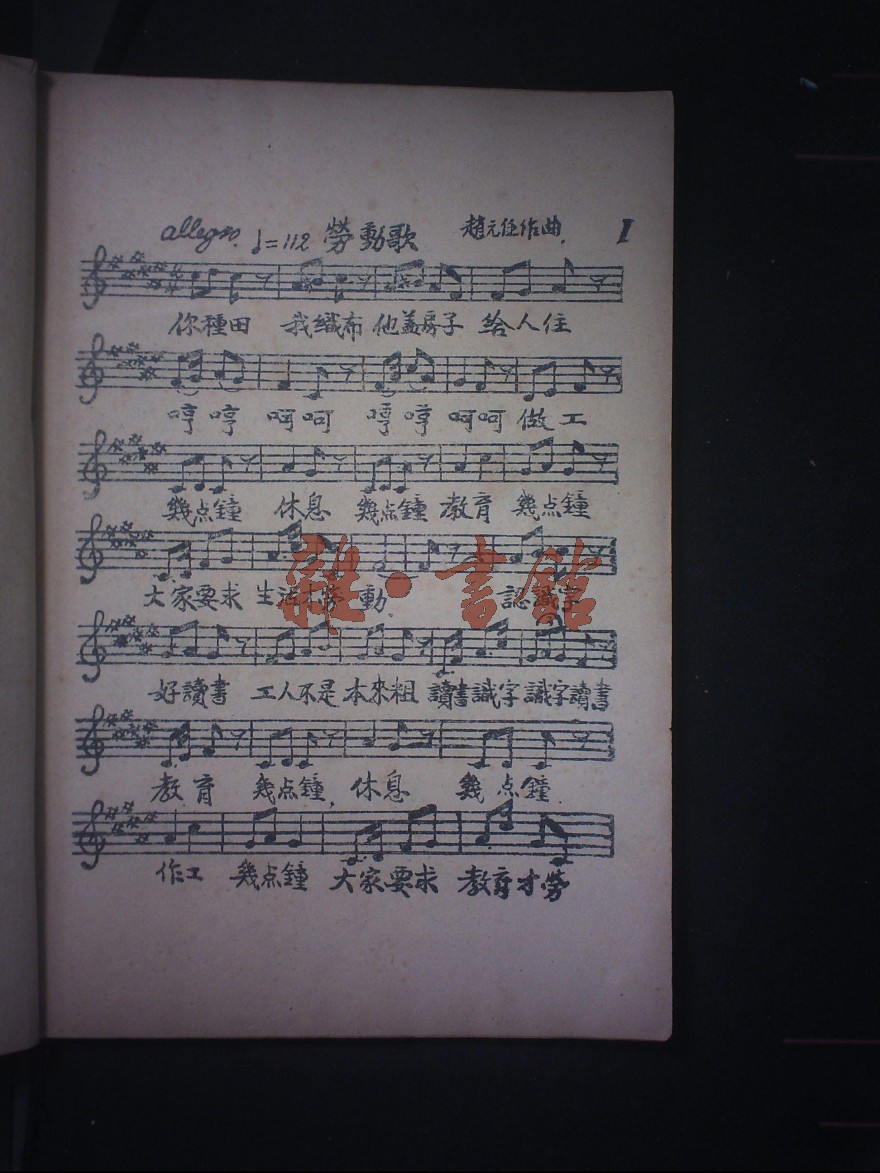 allegro ♩=112 勞動歌 趙元任作曲. I
你種田 我織布 他盖房子 给人住
哼哼 呵呵 哼哼 呵呵 做工
幾点鐘 休息 幾点鐘 教育 幾点鐘
大家要求 生活才勞動. 認識字
好讀書 工人不是本來粗 讀書識字 識字讀書
教育 幾点鐘, 休息 幾点鐘.
作工 幾点鐘 大家要求 教育才勞
雜·書館